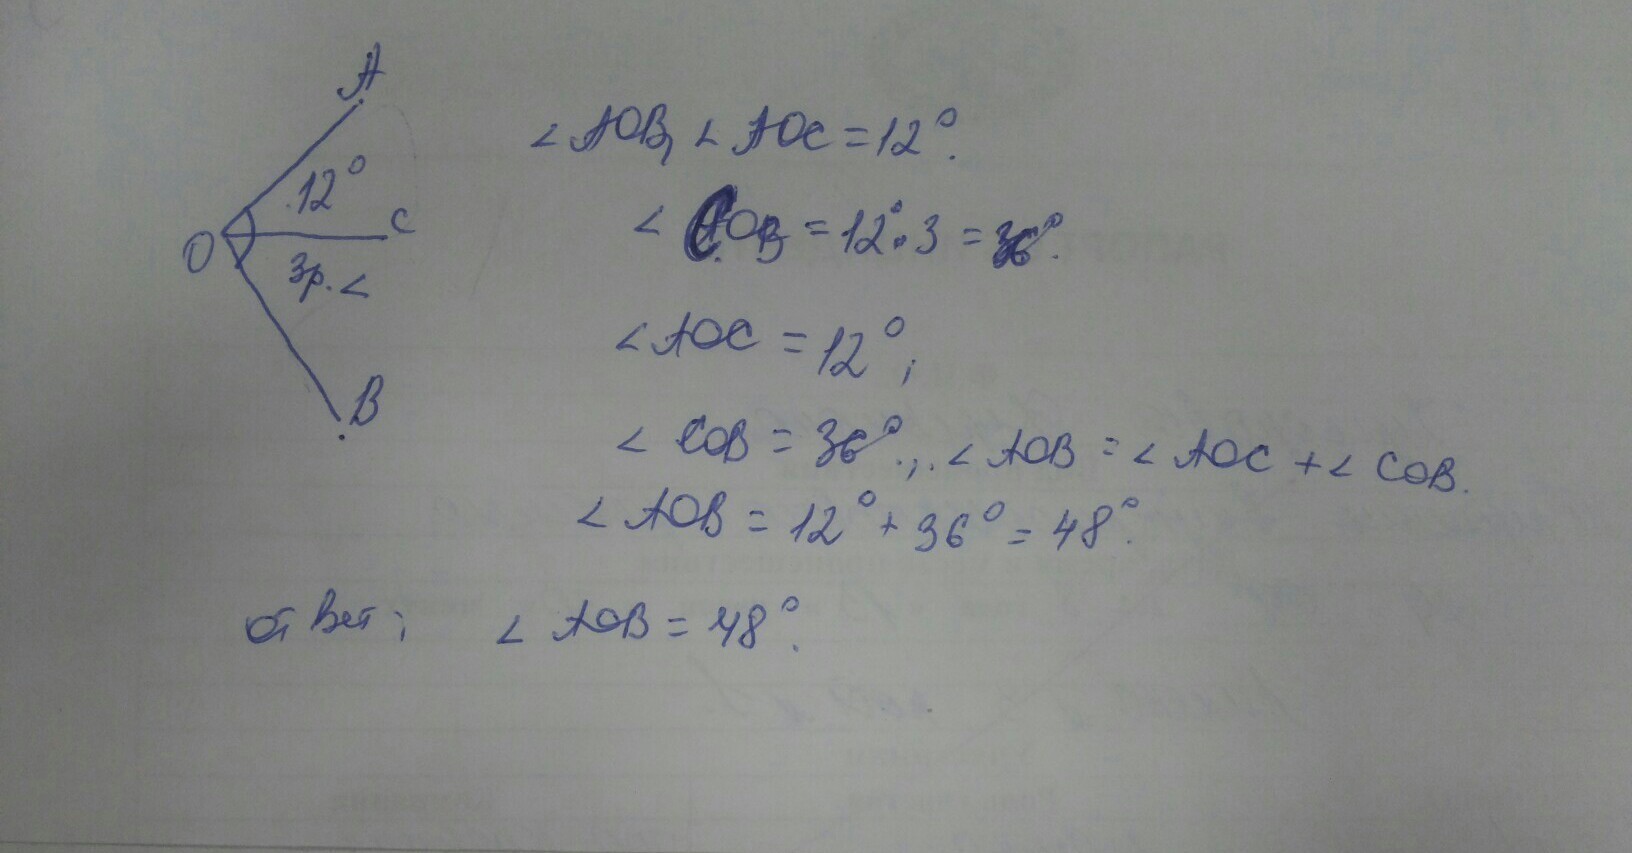 A
12°
C
O
3р. <
B
∠AOB, ∠AOC = 12°.
∠COB = 12°·3 = 36°.
∠AOC = 12°;
∠COB = 36°.,. ∠AOB = ∠AOC + ∠COB.
∠AOB = 12° + 36° = 48°.
ответ; ∠AOB = 48°.